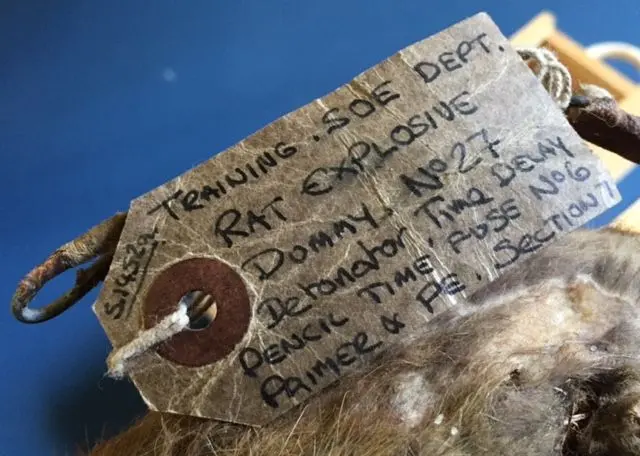 TRAINING. SOE DEPT.
RAT EXPLOSIVE
DUMMY. No 27
Detonator Time DELAY
PENCIL TIME. FUSE No 6
PRIMER & PE. SECTION 7